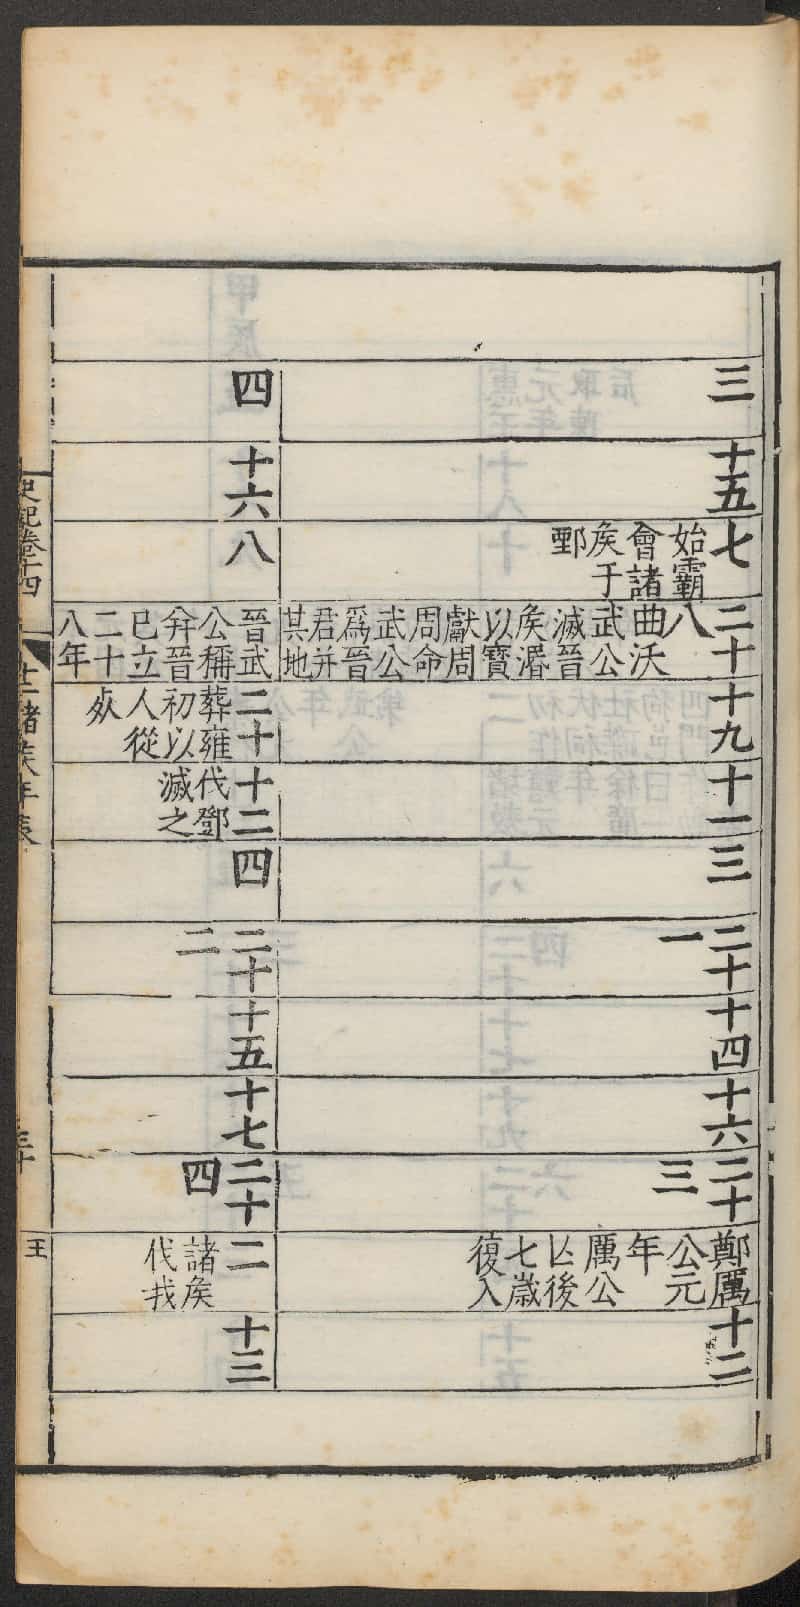 三
十五
七
始霸
會諸
矦于
鄄
二十
八
曲沃
武公
滅晉
矦湣
以寶
獻周
周命
武公
爲晉
君并
其地
十九
十一
三
二十
一
十四
十六
二十
三
鄭厲
公元
年
厲公
亾後
七歲
復入
十二
四
十六
八
晉武
公稱
并晉
已立
二十
八年
二十
葬雍
初以
人從
死
十二
伐鄧
滅之
四
二十
二
十五
十七
二十
四
二
諸矦
伐我
十三
史記卷十四
十二諸矦年表
王